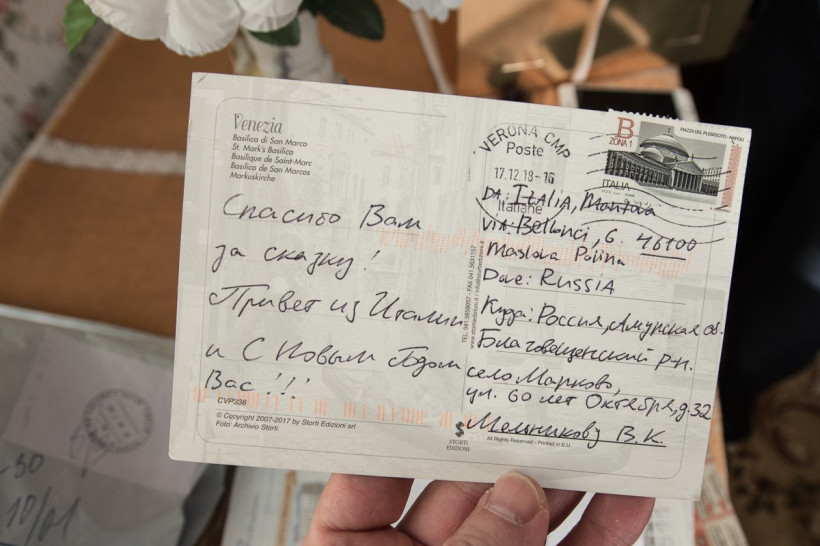 Venezia
Basilica di San Marco
St. Mark's Basilica
Basilique de Saint-Marc
Basilica de San Marcos
Markuskirche
Спасибо Вам
за сказку!
Привет из Италии
и С Новым Годом
Вас!!!
CVP336
© Copyright 2007-2017 by Storti Edizioni srl
Foto: Archivio Storti
STORTI
EDIZIONI
All Rights Reserved - Printed in E.U.
VERONA CMP
Poste
17.12.18-16
Italiane
B
ZONA 1
PIAZZA DEL PLEBISCITO - NAPOLI
ITALIA
DA: ITALIA, Mantova
via. Bellonci, 6. 46100
Maslova Polina
Dove: RUSSIA
Куда: Россия, Амурская об.
Благовещенский р-н.
село Марково,
ул. 60 лет Октября, д. 32
Мельникову В.К.
-30
10/01